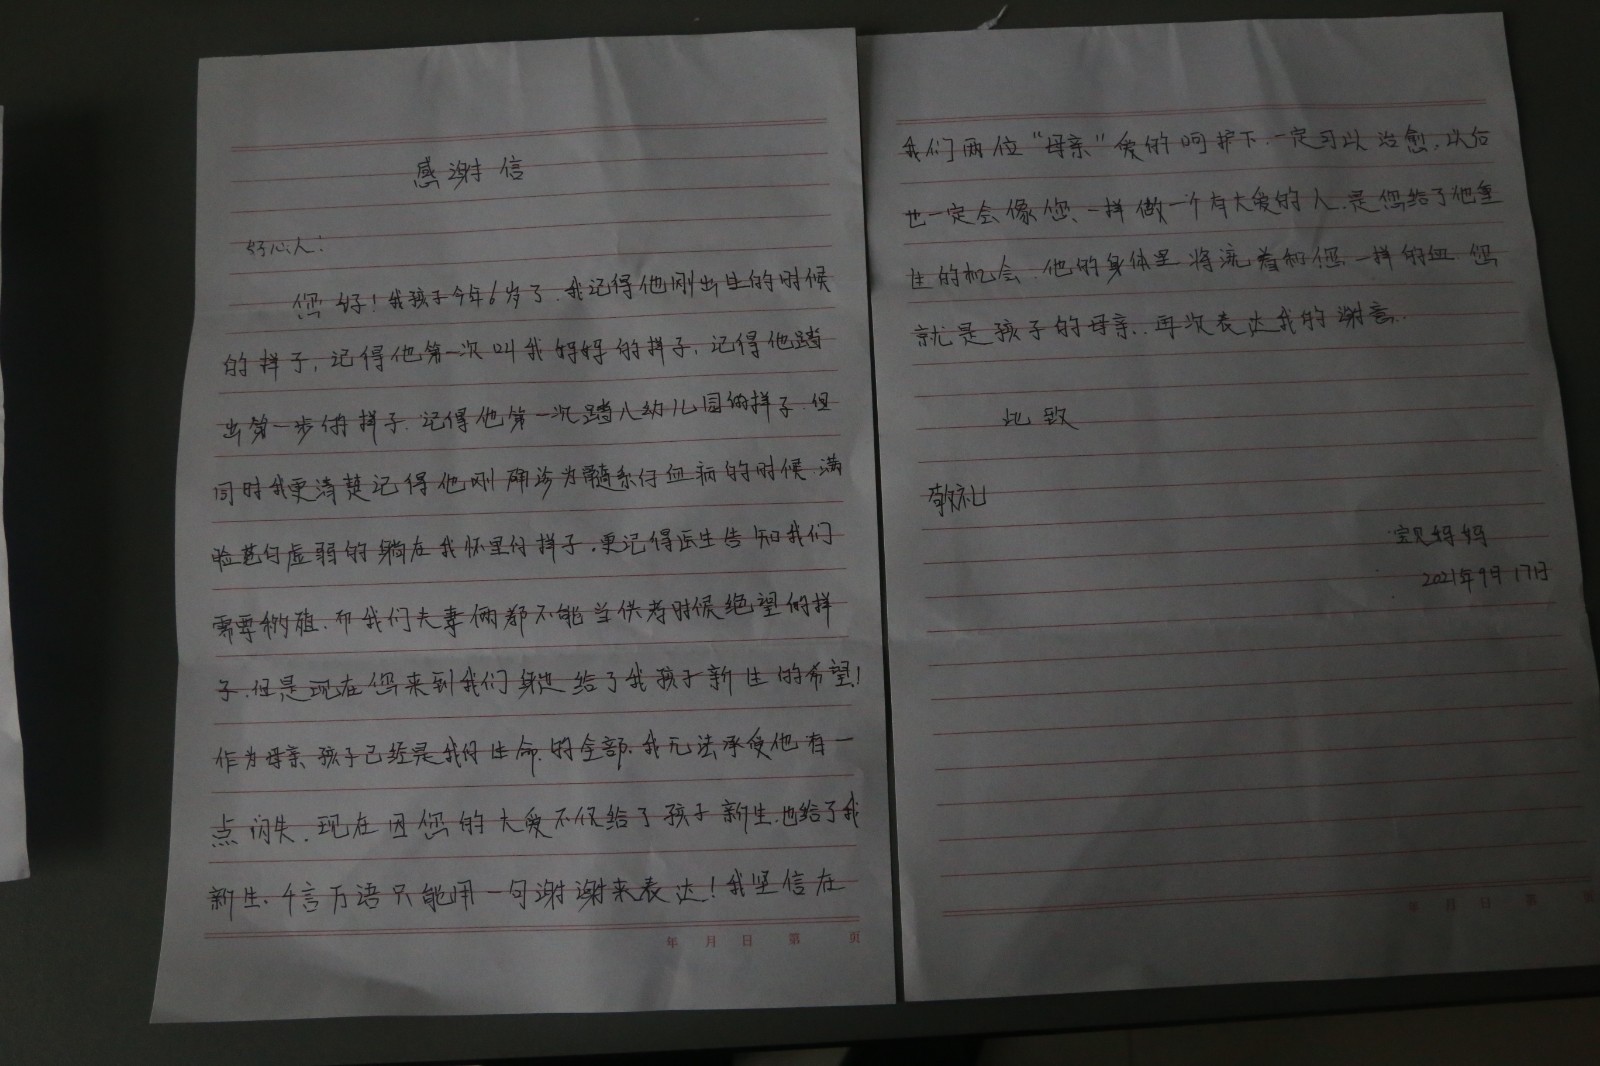 感谢信
好心人：
您好！我孩子今年6岁了．我记得他刚出生的时候
的样子，记得他第一次叫我妈妈的样子，记得他踏
出第一步的样子．记得他第一次踏入幼儿园的样子．但
同时我更清楚记得他刚确诊为髓系白血病的时候．满
脸苍白虚弱的躺在我怀里的样子．更记得医生告知我们
需要移植．而我们夫妻俩都不能当供者时候绝望的样
子．但是现在您来到我们身边给了我孩子新生的希望！
作为母亲．孩子已经是我的生命的全部．我无法承受他有一
点闪失．现在因您的大爱不仅给了孩子新生．也给了我
新生．千言万语只能用一句谢谢来表达！我坚信在
年 月 日 第 页
我们两位“母亲”爱的呵护下．一定可以治愈．以后
也一定会像您一样做一个有大爱的人．是您给了他重
生的机会．他的身体里将流着和您一样的血 您
就是孩子的母亲．．再次表达我的谢意．．
此致
敬礼
宝贝妈妈
2021年9月17日
年 月 日 第 页